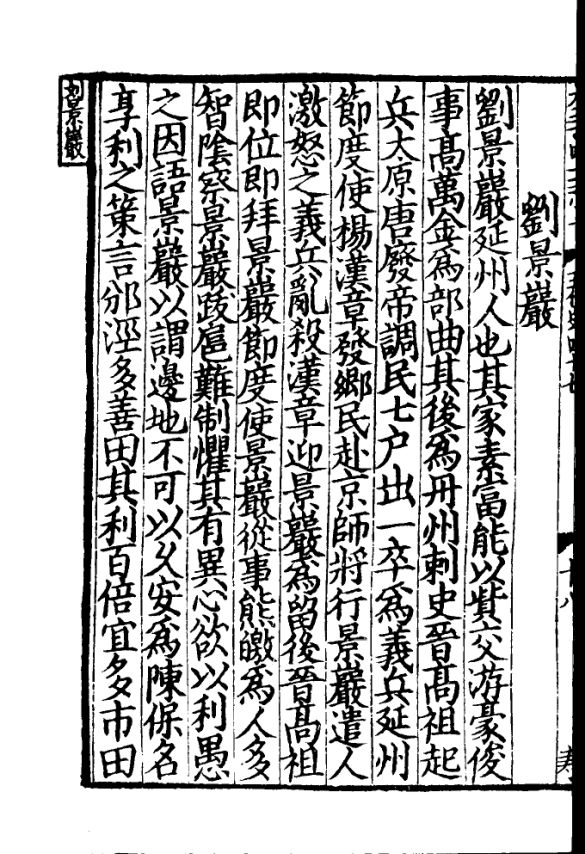 劉景巖
劉景巖延州人也其家素富能以貲交游豪俊
事髙萬金爲部曲其後爲丹州刺史晉髙祖起
兵大原唐廢帝調民七户出一卒爲義兵延州
節度使楊漢章發鄉民赴京師將行景巖遣人
激怒之義兵亂殺漢章迎景巖爲留後晉髙祖
即位即拜景巖節度使景巖從事熊皦爲人多
智隂察景巖跋扈難制懼其有異心欲以利愚
之因語景巖以謂邊地不可以乆安爲陳保名
享利之策言邠涇多善田其利百倍宜多市田
刘景巖